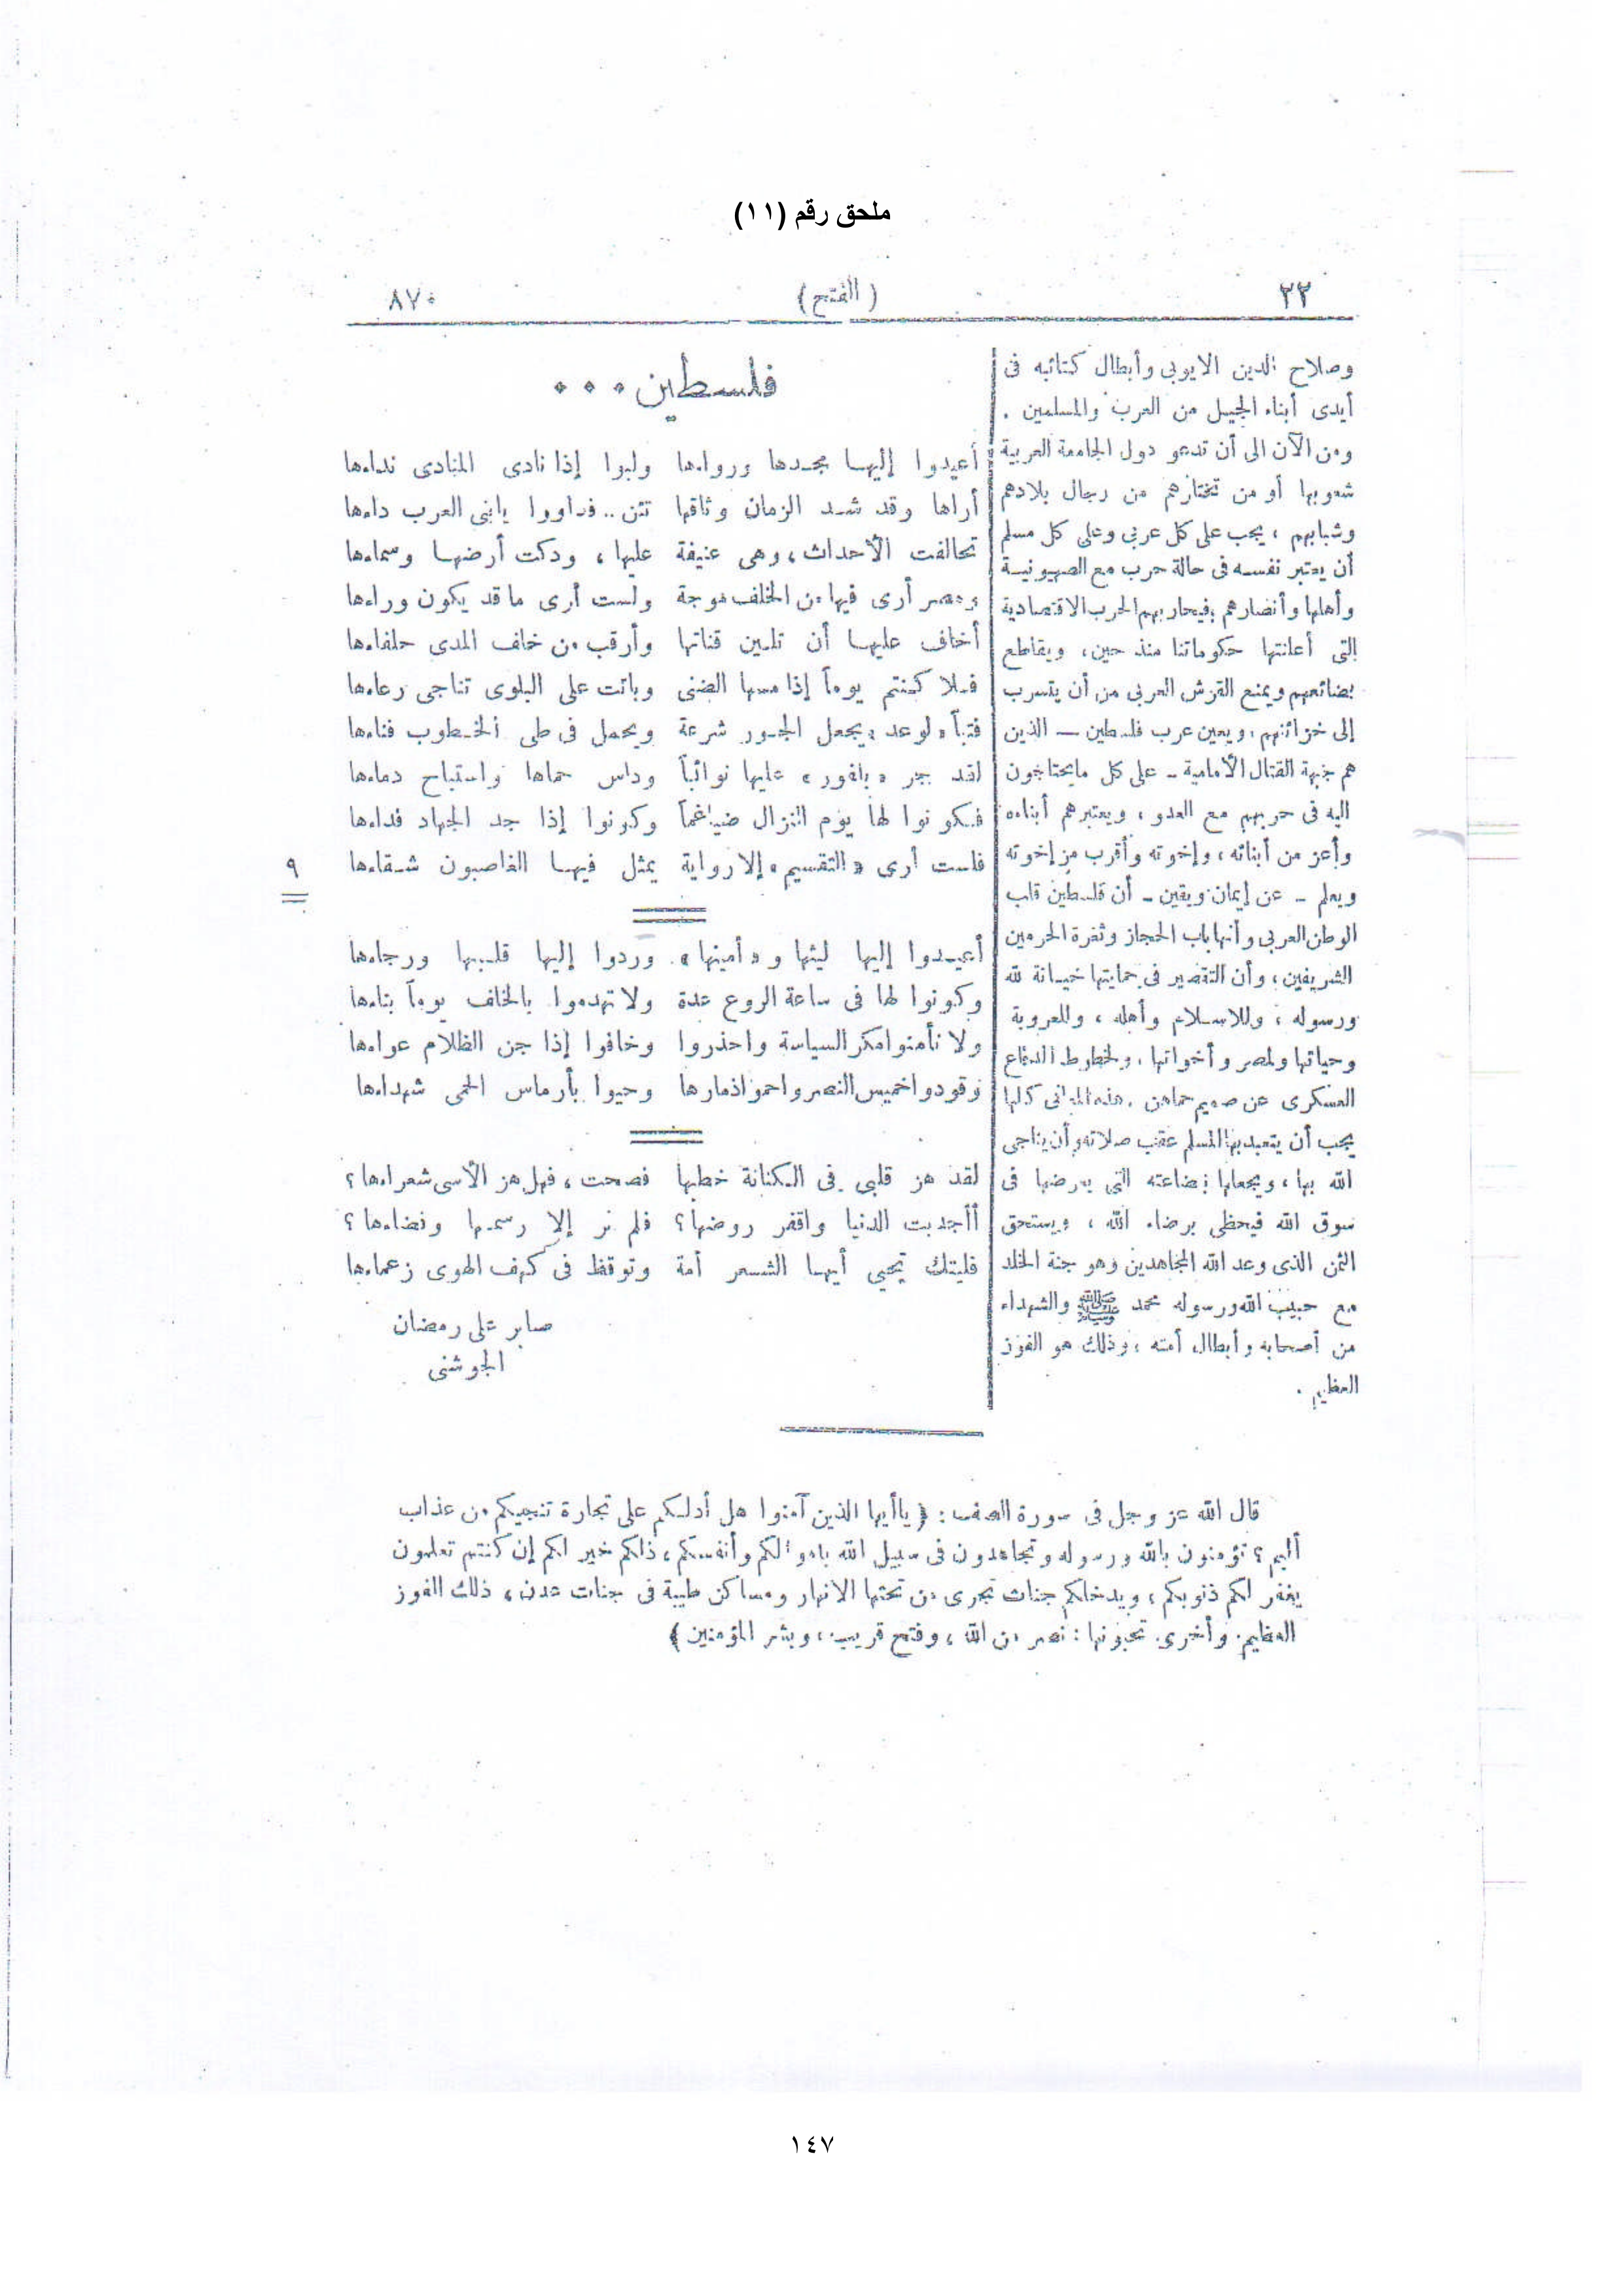 ملحق رقم (١١)
٢٢ (الفتح) ٨٧٠
وصلاح الدين الايوبى وأبطال كتائبه فى
أيدى أبناء الجيل من العرب والمسلمين .
ومن الآن الى أن تدعو دول الجامعة العربية
شعوبها أو من تختارهم من رجال بلادهم
وشبابهم ، يجب على كل عربى وعلى كل مسلم
أن يعتبر نفسه فى حالة حرب مع الصهيونية
وأهلها وأنصارهم ، فيحاربهم الحرب الاقتصادية
التى أعلنتها حكوماتنا منذ حين ، ويقاطع
بضائعهم ويمنع القرش العربى من أن يتسرب
إلى خزائنهم ، ويعين عرب فلسطين — الذين
هم جبهة القتال الأمامية — على كل مايحتاجون
اليه فى حربهم مع العدو ، ويعتبرهم أبناءه
وأعز من أبنائه ، وإخوته وأقرب من إخوته
ويعلم - عن إيمان ويقين - أن فلسطين قلب
الوطن العربى وأنها باب الحجاز وثغرة الحرمين
الشريفين ، وأن التقصير فى حمايتها خيانة لله
ورسوله ، وللاسلام وأهله ، وللعروبة
وحياتها ولمصر وأخواتها ، ولخطوط الدفاع
العسكرى عن صميم حماهن . هذه المعانى كلها
يجب أن يتعبد بها المسلم عقب صلاته وأن يناجى
الله بها ، ويجعلها بضاعته التى يعرضها فى
سوق الله فيحظى برضاء الله ، ويستحق
الثمن الذى وعد الله المجاهدين وهو جنة الخلد
مع حبيب الله ورسوله محمد ﷺ والشهداء
من أصحابه وأبطال أمته ، وذلك هو الفوز
العظيم .
فلسطين ...
أعيدوا إليها مجدها ورواءها ولبوا إذا نادى المنادى نداءها
أراها وقد شد الزمان وثاقها تئن .. فداووا يابنى العرب داءها
تحالفت الأحداث ، وهى عنيفة عليها ، ودكت أرضها وسماءها
ومصر أرى فيها من الخلف موجة ولست أرى ما قد يكون وراءها
أخاف عليها أن تلين قناتها وأرقب من خلف المدى حلفاءها
فلا كنتم يوماً إذا مسها الضنى وباتت على البلوى تناجى رعاءها
فتباً لوعد يجعل الجور شرعة ويحمل فى طى الخطوب فناءها
لقد جر « بلفور » عليها نوائباً وداس حماها واستباح دماءها
فكونوا لها يوم النزال ضياغماً وكونوا إذا جد الجهاد فداءها
فلست أرى « التقسيم » إلا رواية يمثل فيها الغاصبون شقاءها
٩
أعيدوا إليها ليثها و « أمينها » وردوا إليها قلبها ورجاءها
وكونوا لها فى ساعة الروع عدة ولا تهدموا بالخلف يوماً بناءها
ولا تأمنوا مكر السياسة واحذروا وخافوا إذا جن الظلام عواءها
وقودوا خميس النصر واحموا ذمارها وحيوا بأرماس الحمى شهداءها
لقد هز قلبى فى الكنانة خطبها فصحت ، فهل هز الأسى شعراءها ؟
أأجدبت الدنيا واقفر روضها ؟ فلم نر إلا رسمها وفضاءها ؟
فليتك تحيى أيها الشعر أمة وتوقظ فى كهف الهوى زعماءها
صابر على رمضان
الجوشنى
قال الله عز وجل فى سورة الصف : ﴿ ياأيها الذين آمنوا هل أدلكم على تجارة تنجيكم من عذاب
أليم ؟ تؤمنون بالله ورسوله وتجاهدون فى سبيل الله بأموالكم وأنفسكم ، ذلكم خير لكم إن كنتم تعلمون
يغفر لكم ذنوبكم ، ويدخلكم جنات تجرى من تحتها الانهار ومساكن طيبة فى جنات عدن ، ذلك الفوز
العظيم . وأخرى تحبونها : نصر من الله ، وفتح قريب ، وبشر المؤمنين ﴾
١٤٧